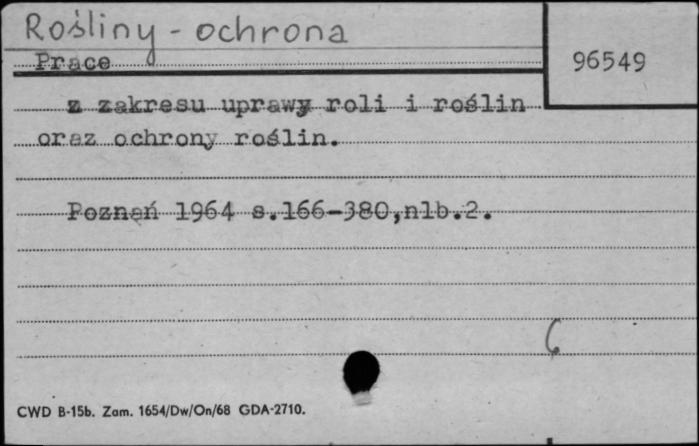 Rośliny - ochrona
Prace
96549
z zakresu uprawy roli i roślin
oraz ochrony roślin.
Poznań 1964 s.166-380,nlb.2.
CWD B-15b. Zam. 1654/Dw/On/68 GDA-2710.